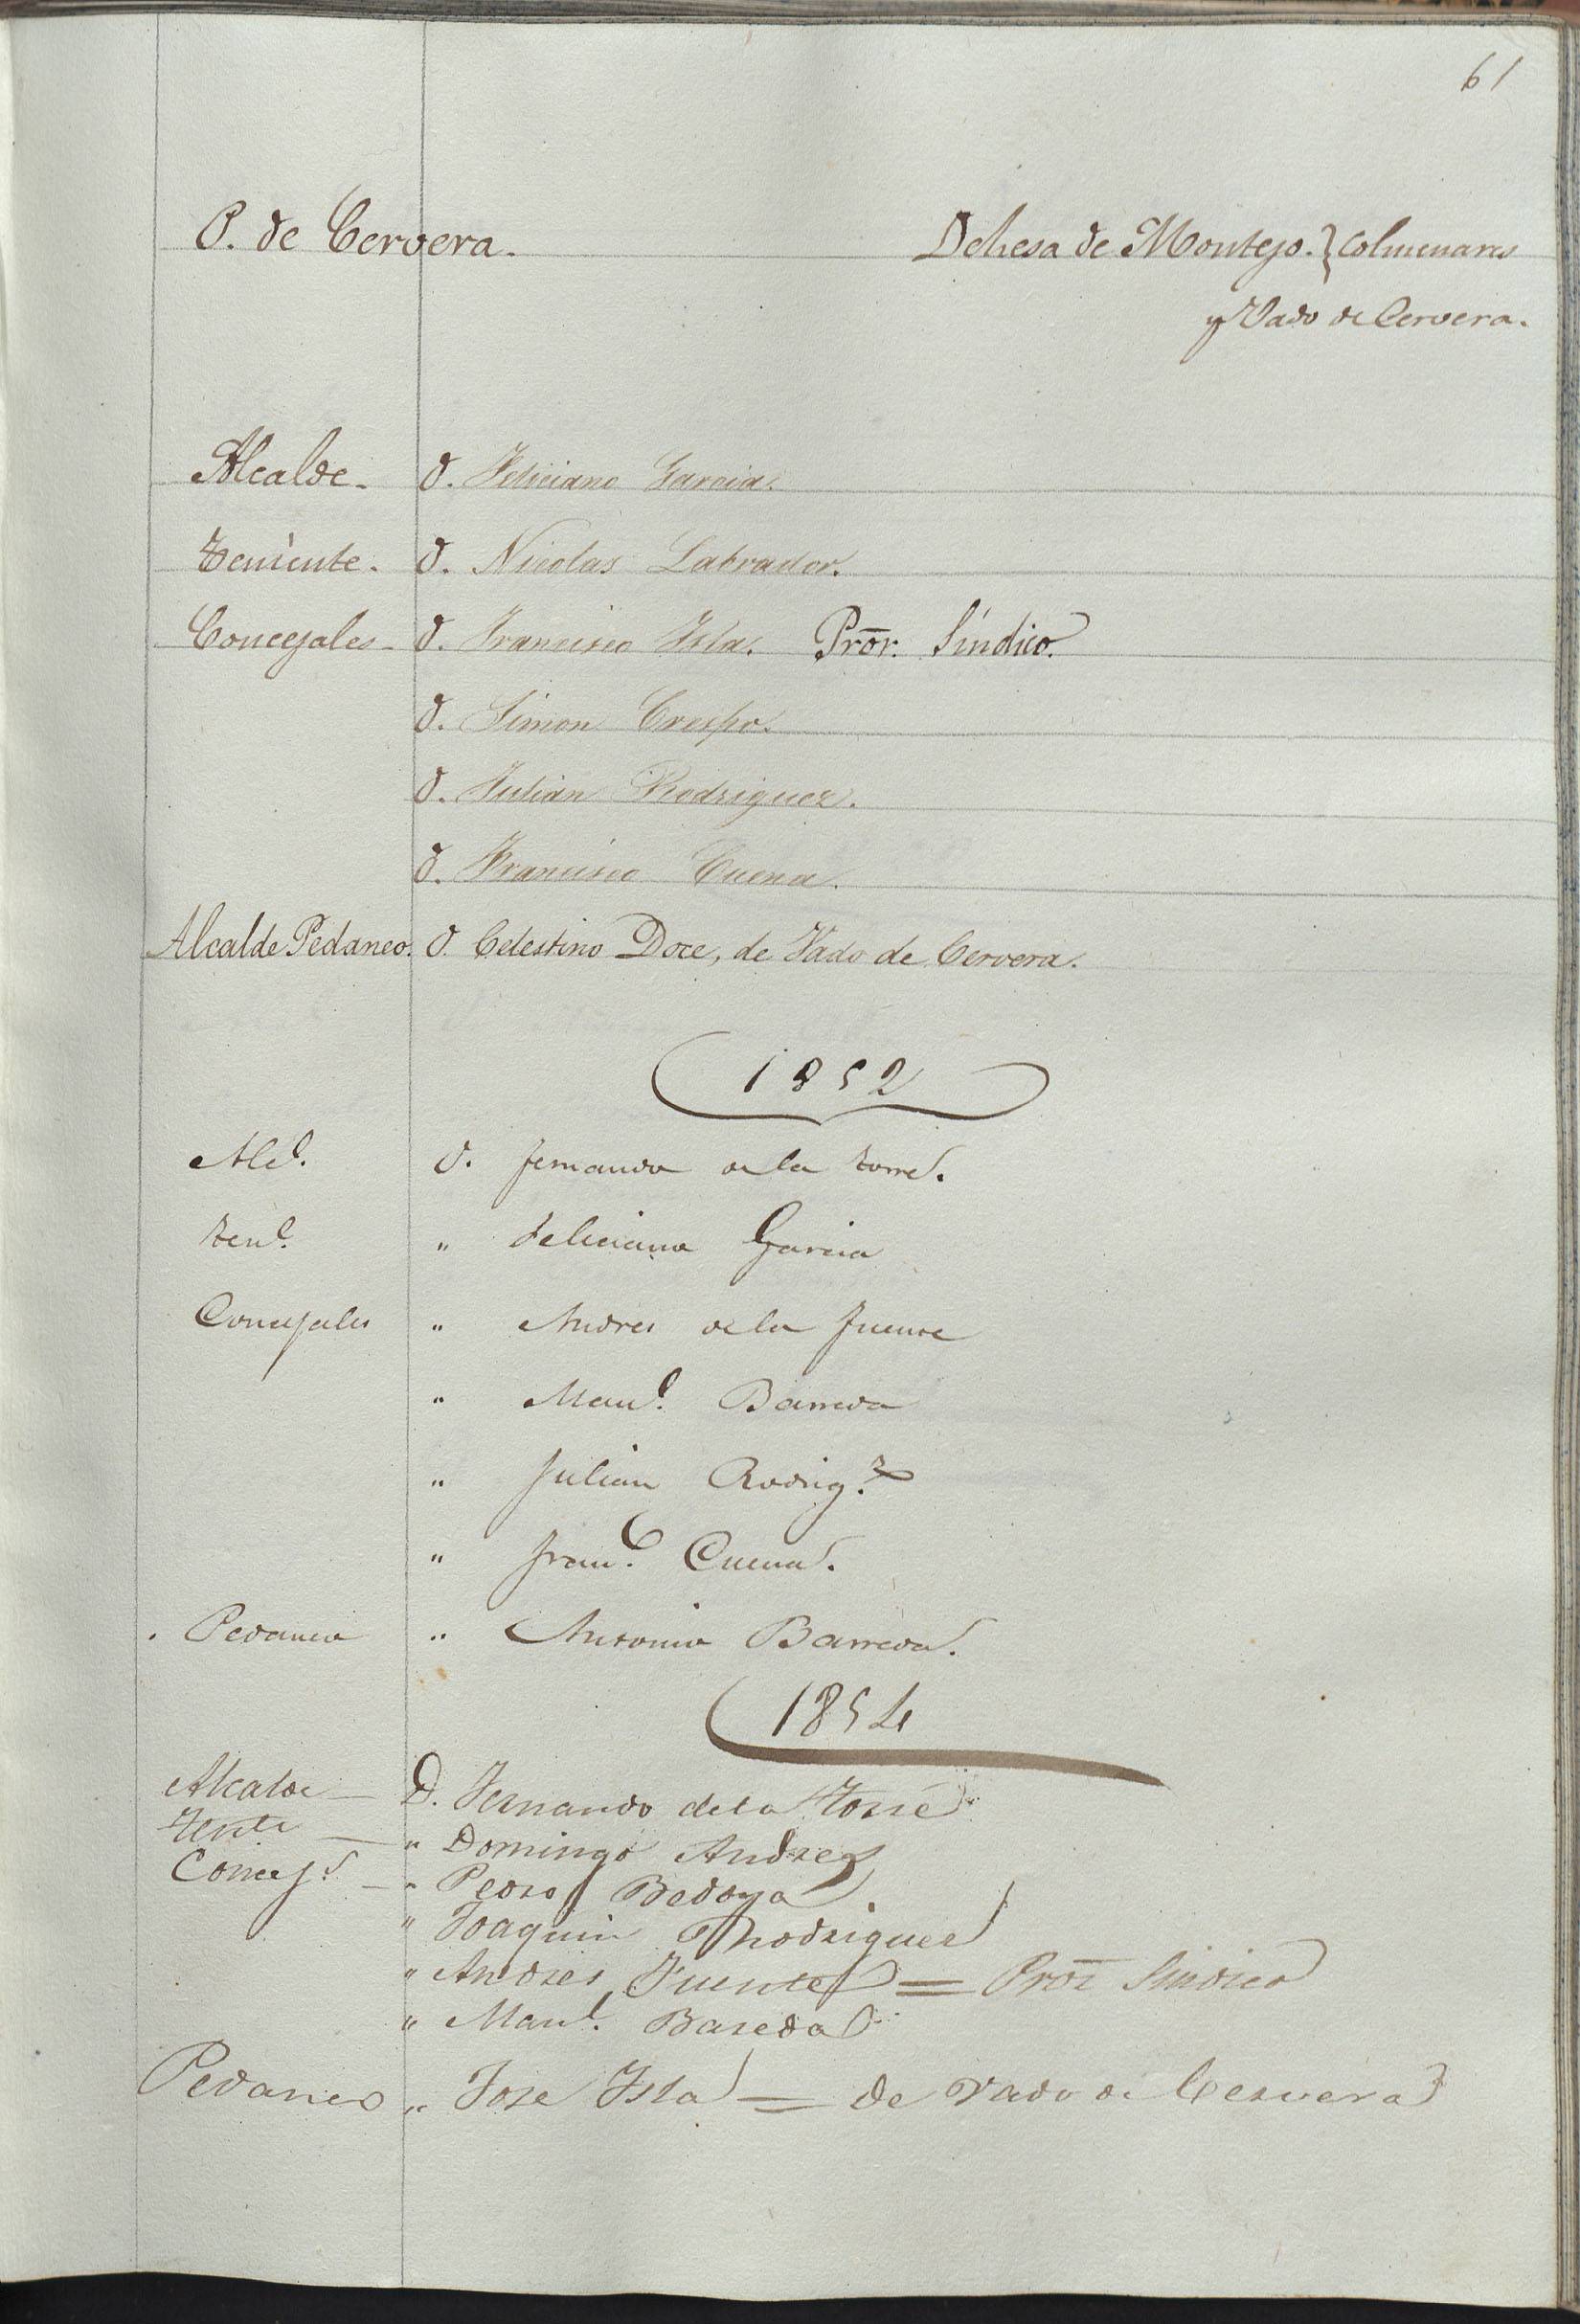 61
P. de Cervera. Dehesa de Montejo. } Colmenares
y Vado de Cervera.
Alcalde - D. Feliciano Garcia.
Teniente. D. Nicolas Labrador.
Concejales - D. Francisco Isla. Pror. Síndico.
D. Simon Crespo.
D. Julian Rodriguez.
D. Francisco Cuena.
Alcalde Pedaneo. D. Celestino Doce, de Vado de Cervera.
1852
Alc.l D. Fernando de la Torre.
Ten.e " Feliciano Garcia
Concejales " Andres de la Fuente
" Man.l Barreda
" Julian Rodrig.z
" Fran.co Cuena.
Pedaneo " Antonio Barreda.
1854
Alcalde — D. Fernando de la Torre
Tente — " Domingo Andrez
Concej.s — " Pedro Bedoya
" Joaquin Rhodriguez
" Andres Fuente = Pror Sindico
" Man.l Bareda
Pedaneo " Jose Isla = de Vado de Cervera